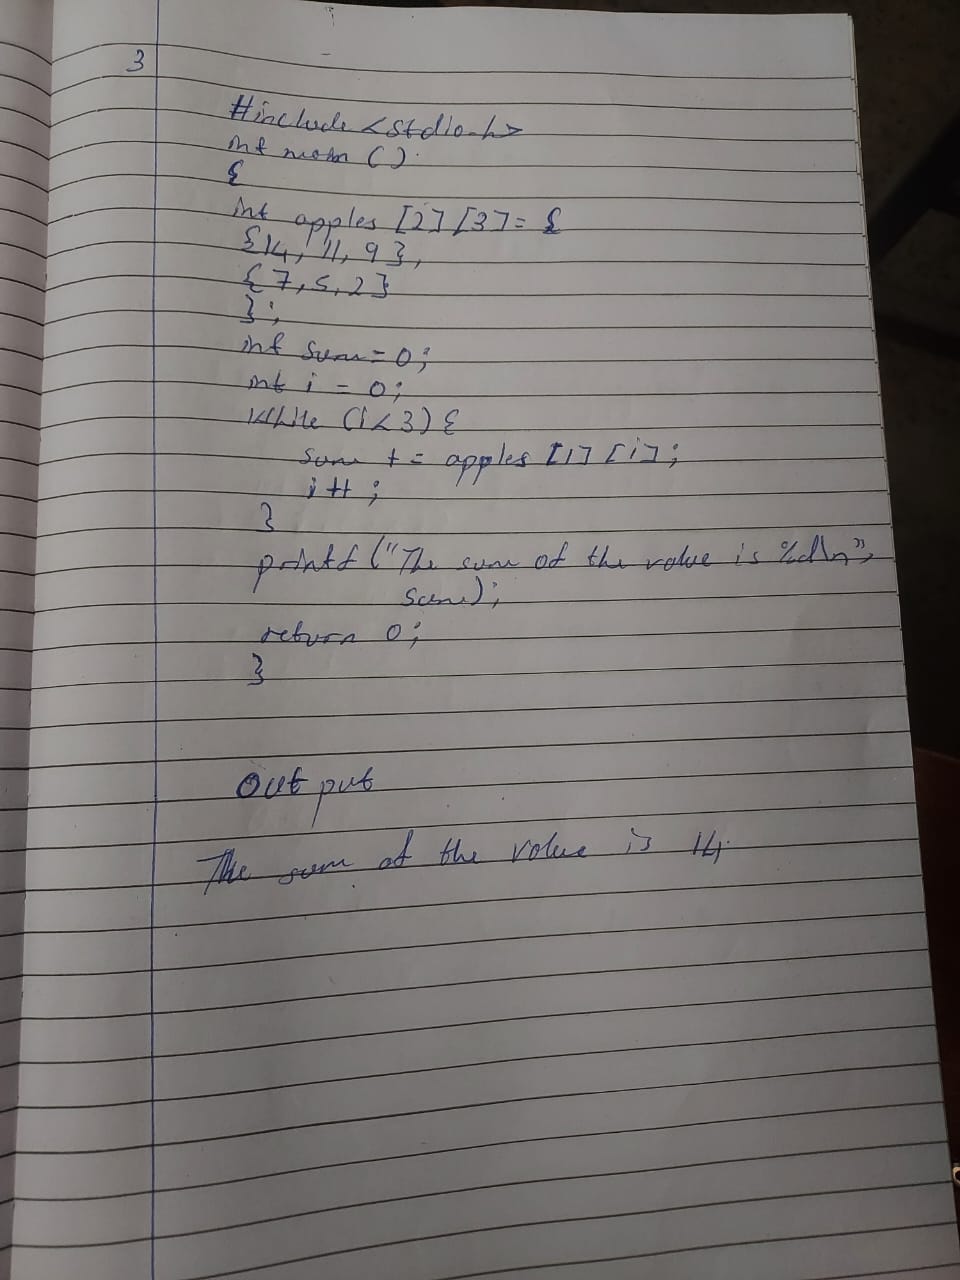 3
#include <stdio.h>
int main ()
{
int apples [2] [3] = {
{14, 11, 9},
{7, 5, 2}
};
int sum = 0;
int i = 0;
while (i < 3) {
sum += apples [1] [i];
i++;
}
printf ("The sum of the value is %d\n",
sum);
return 0;
}
Out put
The sum of the value is 14.